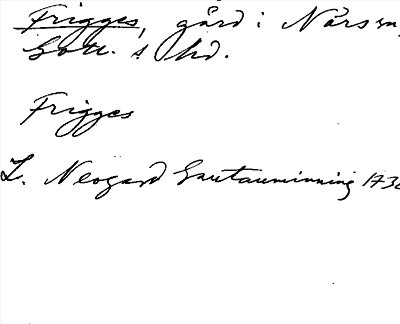 Frigges, gård i Närs sn,
Gotl. s hd.
Frigges
L. Neogard Gautauminning 173